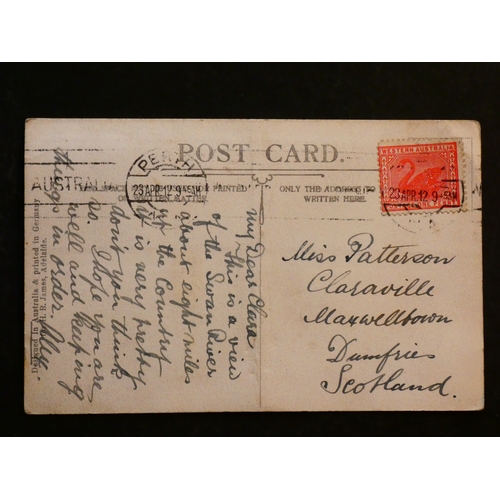 POST CARD.
PERTH
23 APR. 12 9-5 AM
AUSTRALIA
OR PRINTED
OR WRITTEN MATTER.
ONLY THE ADDRESS TO
WRITTEN HERE.
WESTERN AUSTRALIA
23 APR. 12 9-5 AM
My Dear Clara
This is a view
of the Swan River
about eight miles
up the Country
it is very pretty
don't you think
so. I hope you are
well and keeping
things in order.
Miss Patterson
Claraville
Maxwelltown
Dumfries
Scotland.
Designed in Australia & printed in Germany
H. R. James, Adelaide.